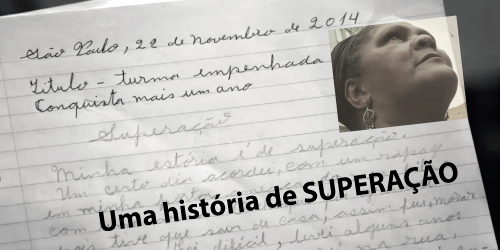 São Paulo, 22 de Novembro de 2014
Titulo - turma empenhada
Conquista mais um ano
Superação
Minha estória é de superação.
Um certo dia acordei, com um rapaz
em minha porta
Uma história de SUPERAÇÃO
mais tive que sair de casa, assim fui, morar
foi dificil, devi alguns anos
na rua,